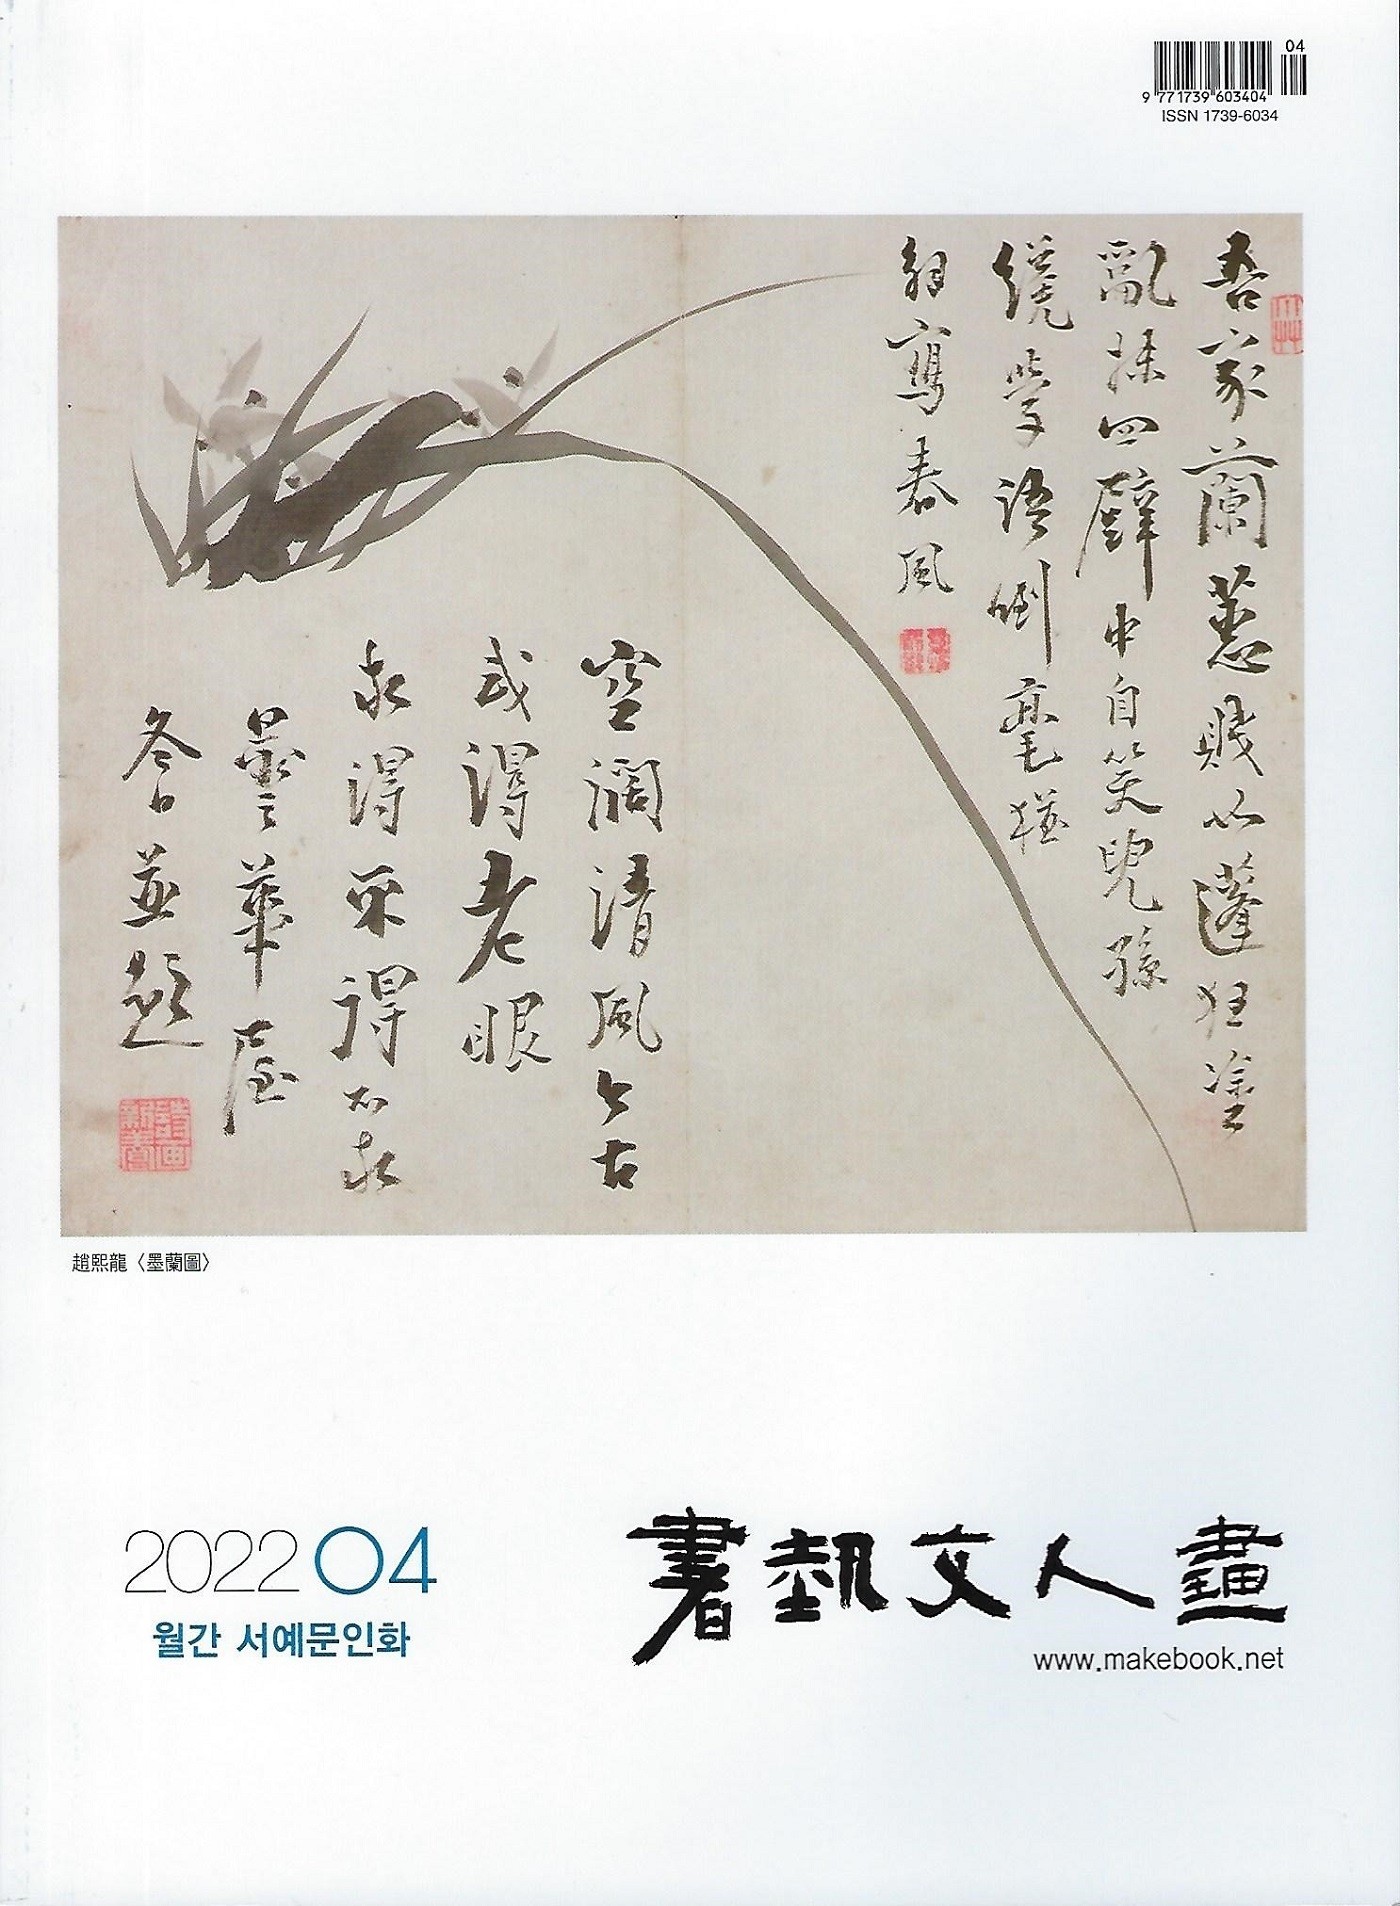 04
9 771739 603404
ISSN 1739-6034
吾家蘭蕙賤如蓬狂塗
亂抹四壁中自笑兒孫
纔學語倒毫
翁寫春風
空濶清風今古
或得老眼
求得得不求
曇華屋
並題
趙熙龍〈墨蘭圖〉
2022 04
월간 서예문인화
書藝文人畫
www.makebook.net